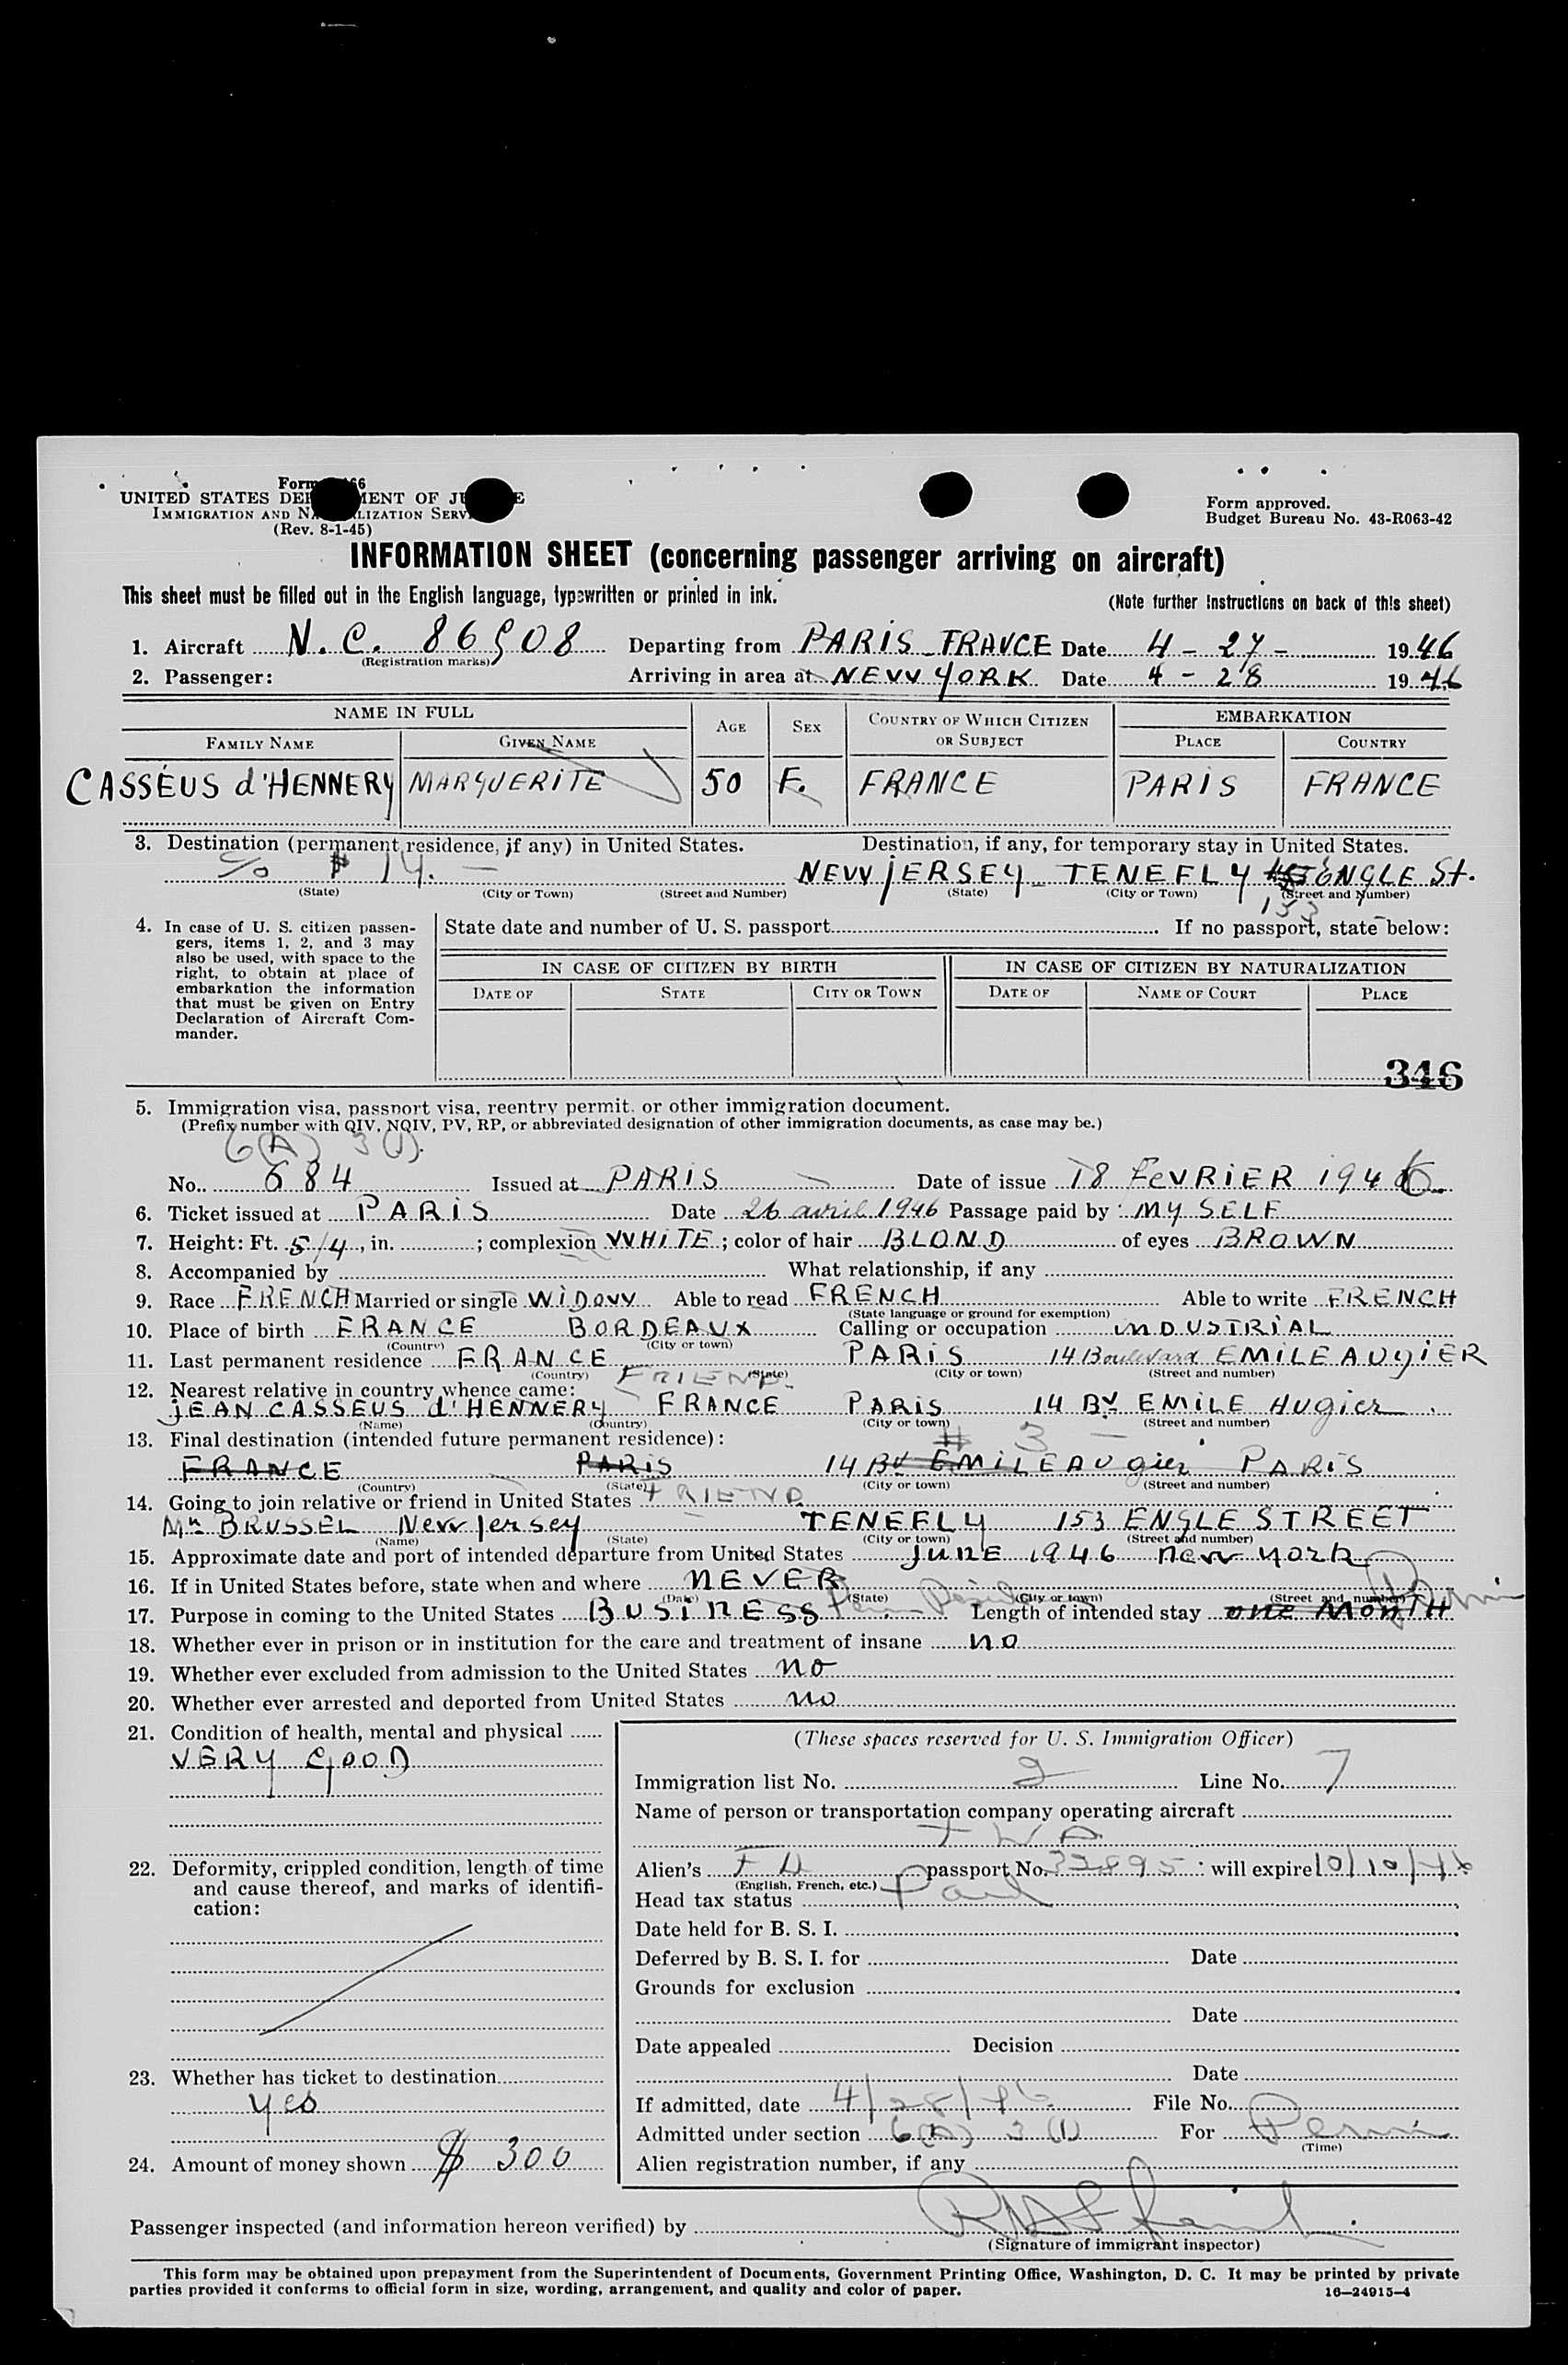 Form 66
UNITED STATES DEP MENT OF JU E
IMMIGRATION AND NA LIZATION SERV
(Rev. 8-1-45)
Form approved.
Budget Bureau No. 43-R063-42
INFORMATION SHEET (concerning passenger arriving on aircraft)
This sheet must be filled out in the English language, typewritten or printed in ink.
(Note further instructions on back of this sheet)
1. Aircraft N.C. 86508 Departing from PARIS FRANCE Date 4 - 27 - 1946
(Registration marks)
2. Passenger: Arriving in area at NEW YORK Date 4 - 28 1946
NAME IN FULL AGE SEX COUNTRY OF WHICH CITIZEN OR SUBJECT EMBARKATION
FAMILY NAME GIVEN NAME PLACE COUNTRY
CASSÉUS d'HENNERY MARGUERITE 50 F. FRANCE PARIS FRANCE
3. Destination (permanent residence, if any) in United States. Destination, if any, for temporary stay in United States.
$ 14. — NEW JERSEY - TENEFLY ENGLE St.
(State) (City or Town) (Street and Number) (State) (City or Town) (Street and Number)
153
4. In case of U. S. citizen passengers, items 1, 2, and 3 may also be used, with space to the right, to obtain at place of embarkation the information that must be given on Entry Declaration of Aircraft Commander.
State date and number of U. S. passport If no passport, state below:
IN CASE OF CITIZEN BY BIRTH IN CASE OF CITIZEN BY NATURALIZATION
DATE OF STATE CITY OR TOWN DATE OF NAME OF COURT PLACE
346
5. Immigration visa, passport visa, reentry permit, or other immigration document.
(Prefix number with QIV, NQIV, PV, RP, or abbreviated designation of other immigration documents, as case may be.)
6(A) 3(1).
No. 684 Issued at PARIS Date of issue 18 FeVRIER 1946
6. Ticket issued at PARIS Date 26 avril 1946 Passage paid by MY SELF
7. Height: Ft. 5/4, in. ; complexion WHITE ; color of hair BLOND of eyes BROWN
8. Accompanied by What relationship, if any
9. Race FRENCH Married or single WIDOW Able to read FRENCH Able to write FRENCH
(State language or ground for exemption)
10. Place of birth FRANCE BORDEAUX Calling or occupation INDUSTRIAL
(Country) (City or town)
11. Last permanent residence FRANCE PARIS 14 Boulevard EMILE AUGIER
(Country) (State) (City or town) (Street and number)
FRIEND
12. Nearest relative in country whence came:
JEAN CASSEUS d'HENNERY FRANCE PARIS 14 Bv EMILE AUgier
(Name) (Country) (City or town) (Street and number)
13. Final destination (intended future permanent residence): # 3 —
FRANCE PARIS 14 Bv EMILE AUgier PARIS
(Country) (State) (City or town) (Street and number)
14. Going to join relative or friend in United States FRIEND
Mr BRUSSEL New Jersey TENEFLY 153 ENGLE STREET
(Name) (State) (City or town) (Street and number)
15. Approximate date and port of intended departure from United States JUNE 1946 new york
16. If in United States before, state when and where NEVER
(Date) (State) (City or town) (Street and number)
17. Purpose in coming to the United States BUSINESS Length of intended stay one MONTH
18. Whether ever in prison or in institution for the care and treatment of insane no
19. Whether ever excluded from admission to the United States no
20. Whether ever arrested and deported from United States no
21. Condition of health, mental and physical
VERY GOOD
22. Deformity, crippled condition, length of time and cause thereof, and marks of identification:
23. Whether has ticket to destination
yes
24. Amount of money shown $ 300
(These spaces reserved for U. S. Immigration Officer)
Immigration list No. 2 Line No. 7
Name of person or transportation company operating aircraft
TWA
Alien's passport No. will expire 10/10/46
(English, French, etc.)
Head tax status Paid
Date held for B. S. I.
Deferred by B. S. I. for Date
Grounds for exclusion
Date
Date appealed Decision
Date
If admitted, date 4/28/46 File No.
Admitted under section 6(A) 3(1) For
(Time)
Alien registration number, if any
Passenger inspected (and information hereon verified) by
(Signature of immigrant inspector)
This form may be obtained upon prepayment from the Superintendent of Documents, Government Printing Office, Washington, D. C. It may be printed by private
parties provided it conforms to official form in size, wording, arrangement, and quality and color of paper. 16—24915-4